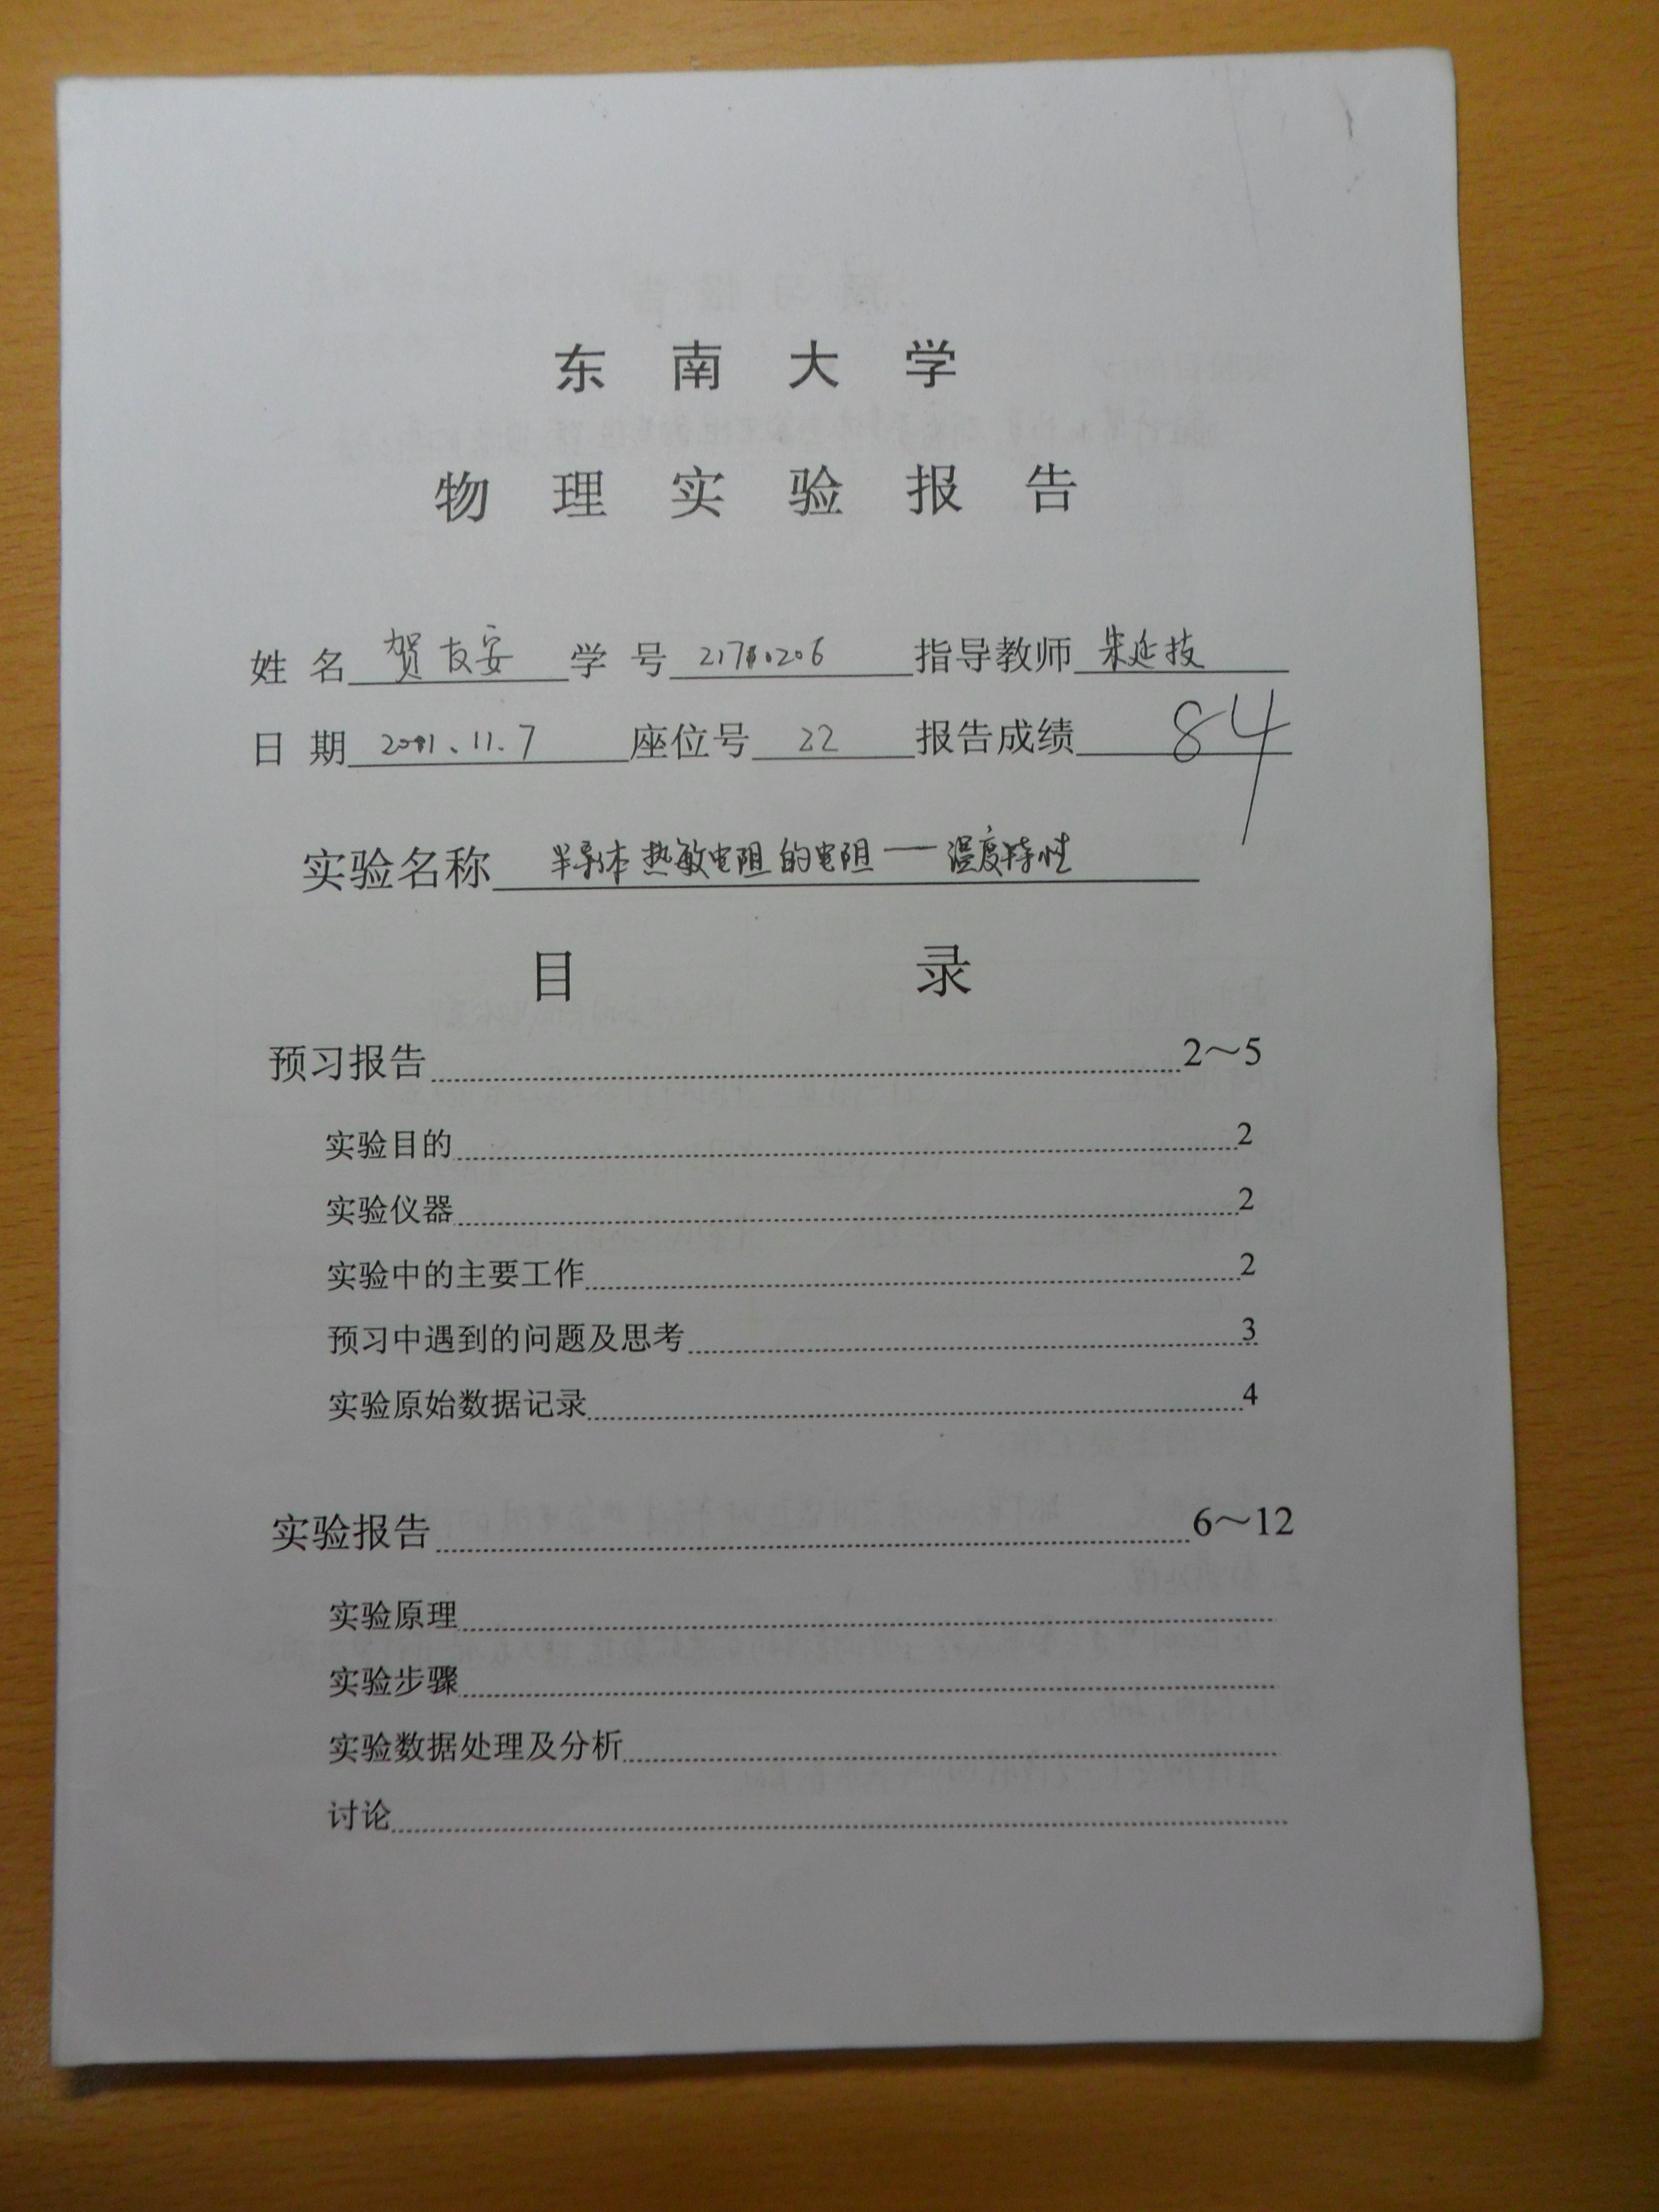 东南大学
物理实验报告
姓名 贺友安 学号 21710206 指导教师 朱延技
日期 2011.11.7 座位号 22 报告成绩 84
实验名称 半导体热敏电阻的电阻——温度特性
目录
预习报告 2～5
实验目的 2
实验仪器 2
实验中的主要工作 2
预习中遇到的问题及思考 3
实验原始数据记录 4
实验报告 6～12
实验原理
实验步骤
实验数据处理及分析
讨论